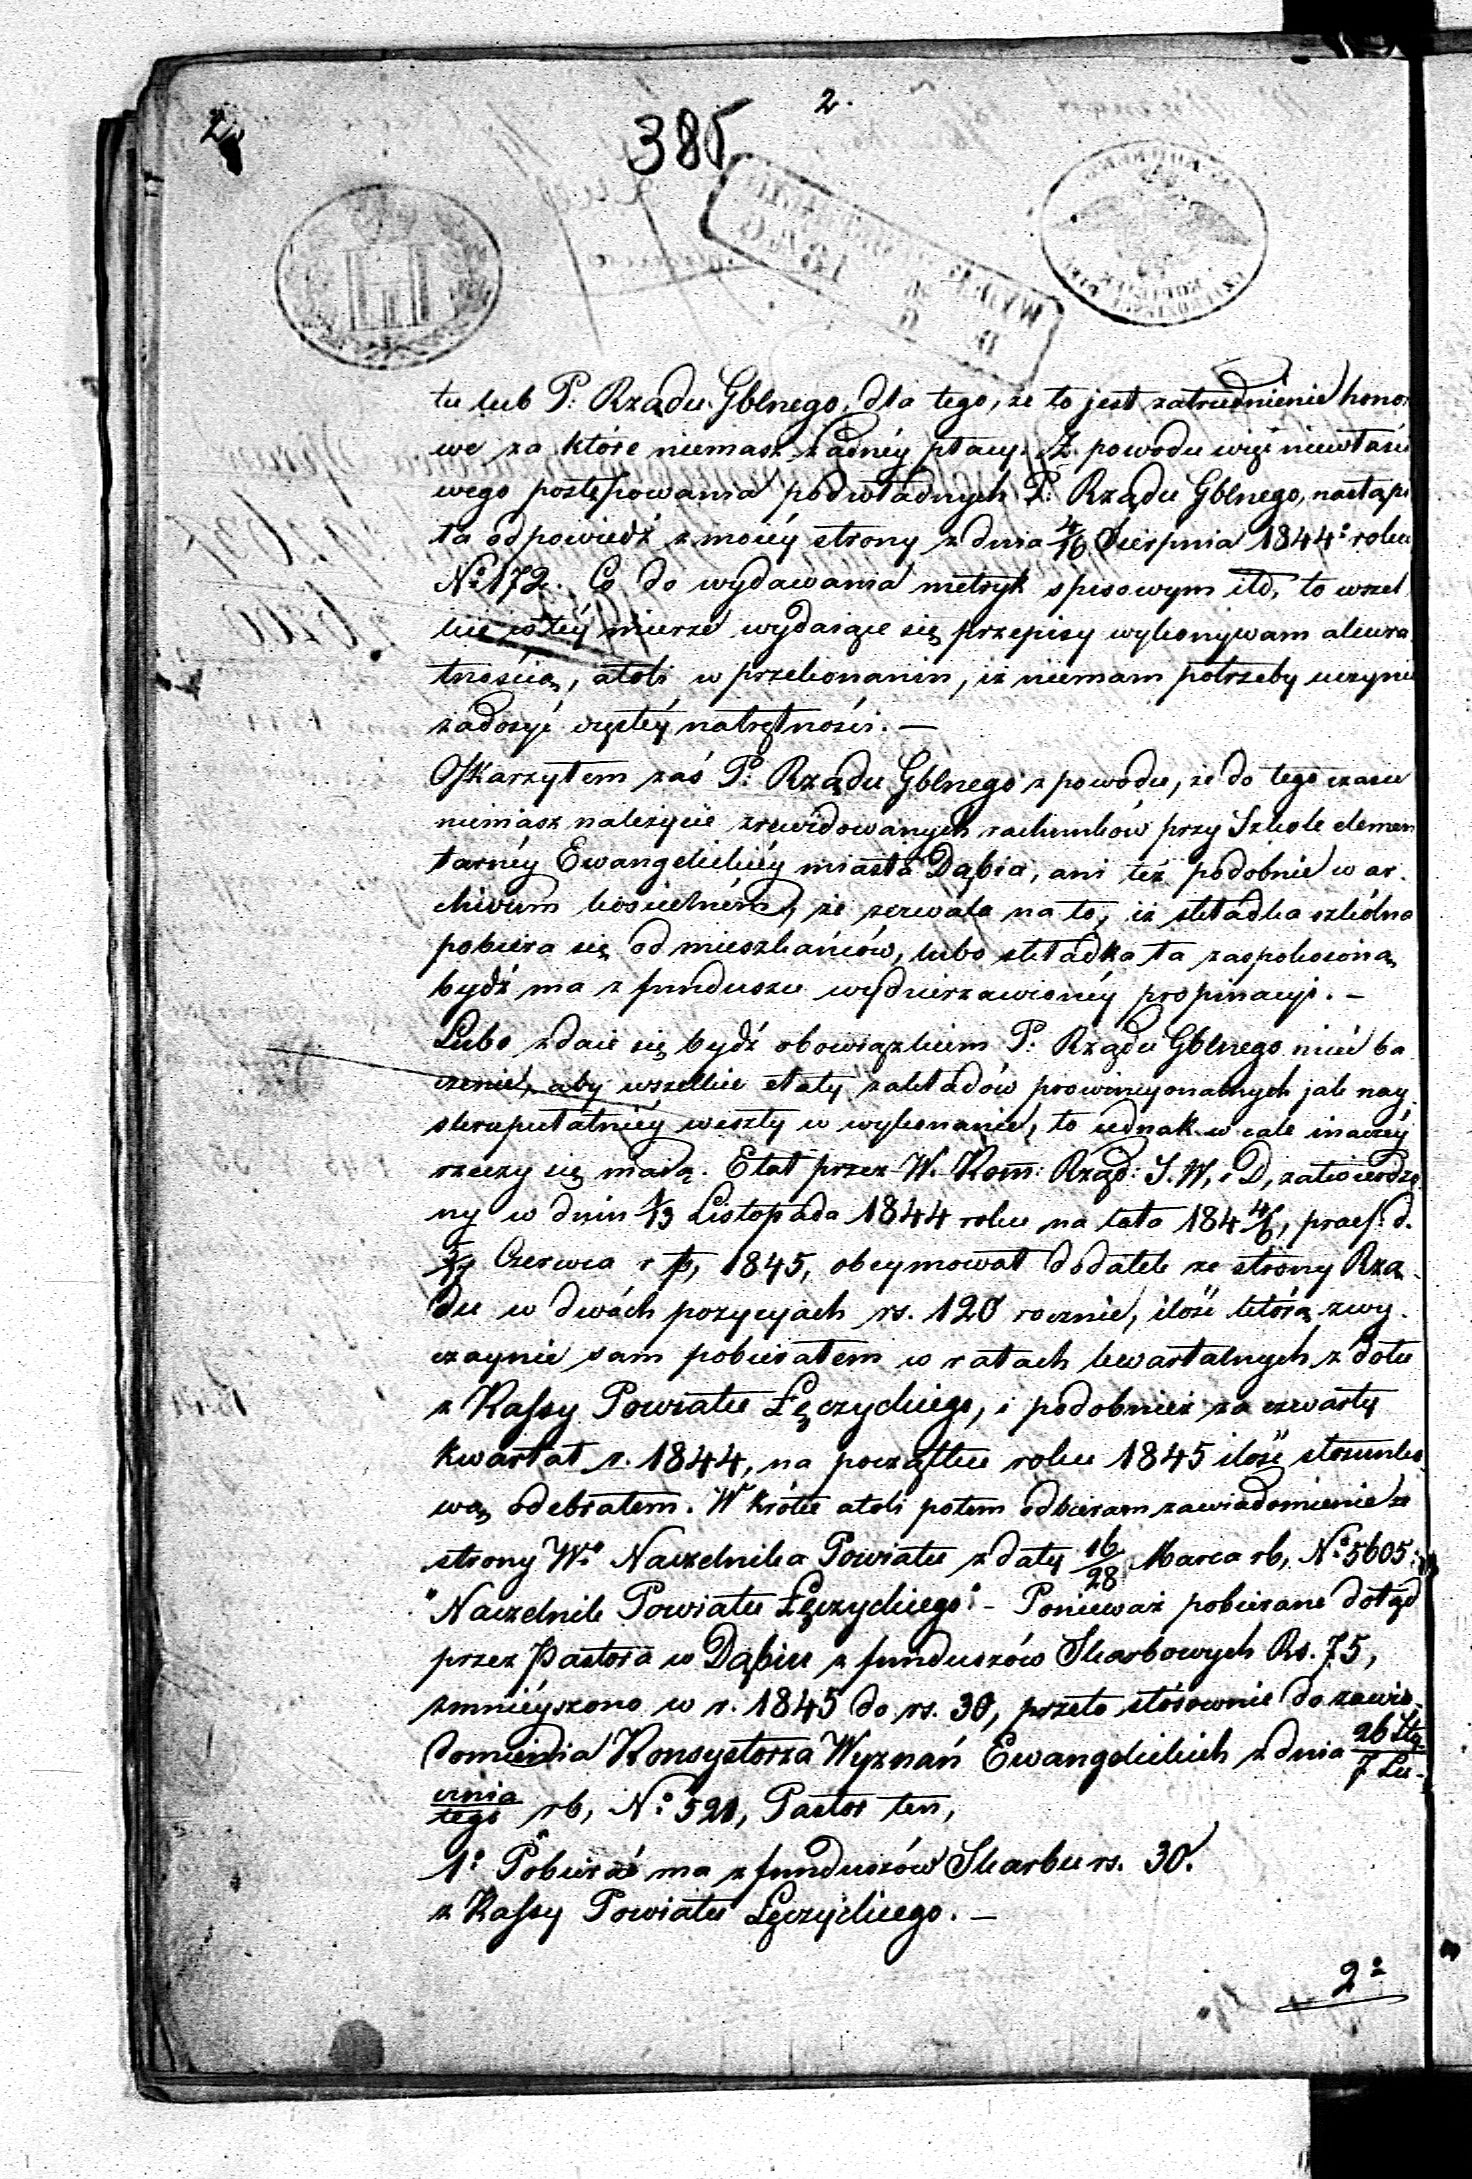 2.
385
tu lub P: Rządu Gblnego, dla tego, że to jest zatrudnienie honor
we za które niemasz żadnéy płacy. Z powodu więc niewłaści
wego postępowania podwładnych P: Rządu Gblnego, nastąpi
ła odpowiedź z moiéy strony z dnia 4/16 Sierpnia 1844º roku
Nº 172. Co do wydawania metryk spisowym itd, to wszel
kie w téy mierze wydaiące się przepisy wykonywam akura
tnością, atoli w przekonaniu, iż niemam potrzeby uczynić
zadosyć natrętności. —
Oskarzyłem zaś P: Rządu Gblnego z powodu, że do tego czasu
niemasz należycie zrewidowanych rachunków przy Szkole elemen
tarnéy Ewangelickiéy miasta Dąbia, ani téż podobnie w ar-
chivum kościelném, że zezwala na to, iż składka szkólna
pobiera się od mieszkańców, lubo składka ta zaspokoioną
bydź ma z funduszu wydzierzawionéy propinacyi. —
Lubo zdaie się bydź obowiązkiem P: Rządu Gblnego mieć ba
czenie, aby wszelkie etaty zakładów prowincyonalnych jak nay
skrupulatniéy weszły w wykonanie, to iednak w cale inaczéy
rzeczy się maią. Etat przez W. Kom: Rząd: S. W. i D, zatwierdzo
ny w dniu 1/13 Listopada 1844 roku na lata 184 4/6, praes. d.
Czerwca r b, 1845, obeymował dodatek ze strony Rzą
du w dwóch pozycyjach rs. 120 rocznie, ilość którą zwy-
czaynie sam pobierałem w ratach kwartalnych z dołu
z Kassy Powiatu Łęczyckiego, i podobnież za czwarty
kwartał r. 1844, na początku roku 1845 ilość stosunko
wą odebrałem. W krótce atoli potem odbieram zawiadomienie ze
strony Wº Naczelnika Powiatu z daty 16/28 Marca rb, Nº 5605:
"Naczelnik Powiatu Łęczyckiego" - Ponieważ pobierane dotąd
przez Pastora w Dąbiu z funduszów Skarbowych Rs. 75,
zmniéyszono w r. 1845 do rs. 30, przeto stósownie do zawia-
domienia Konsystorza Wyznań Ewangelickich z dnia 26 Sty-/7 Lu-
cznia/tego rb, Nº 521, Pastor ten,
1º Pobierać ma z funduszów Skarbu rs. 30.
z Kassy Powiatu Łęczyckiego. —
2º